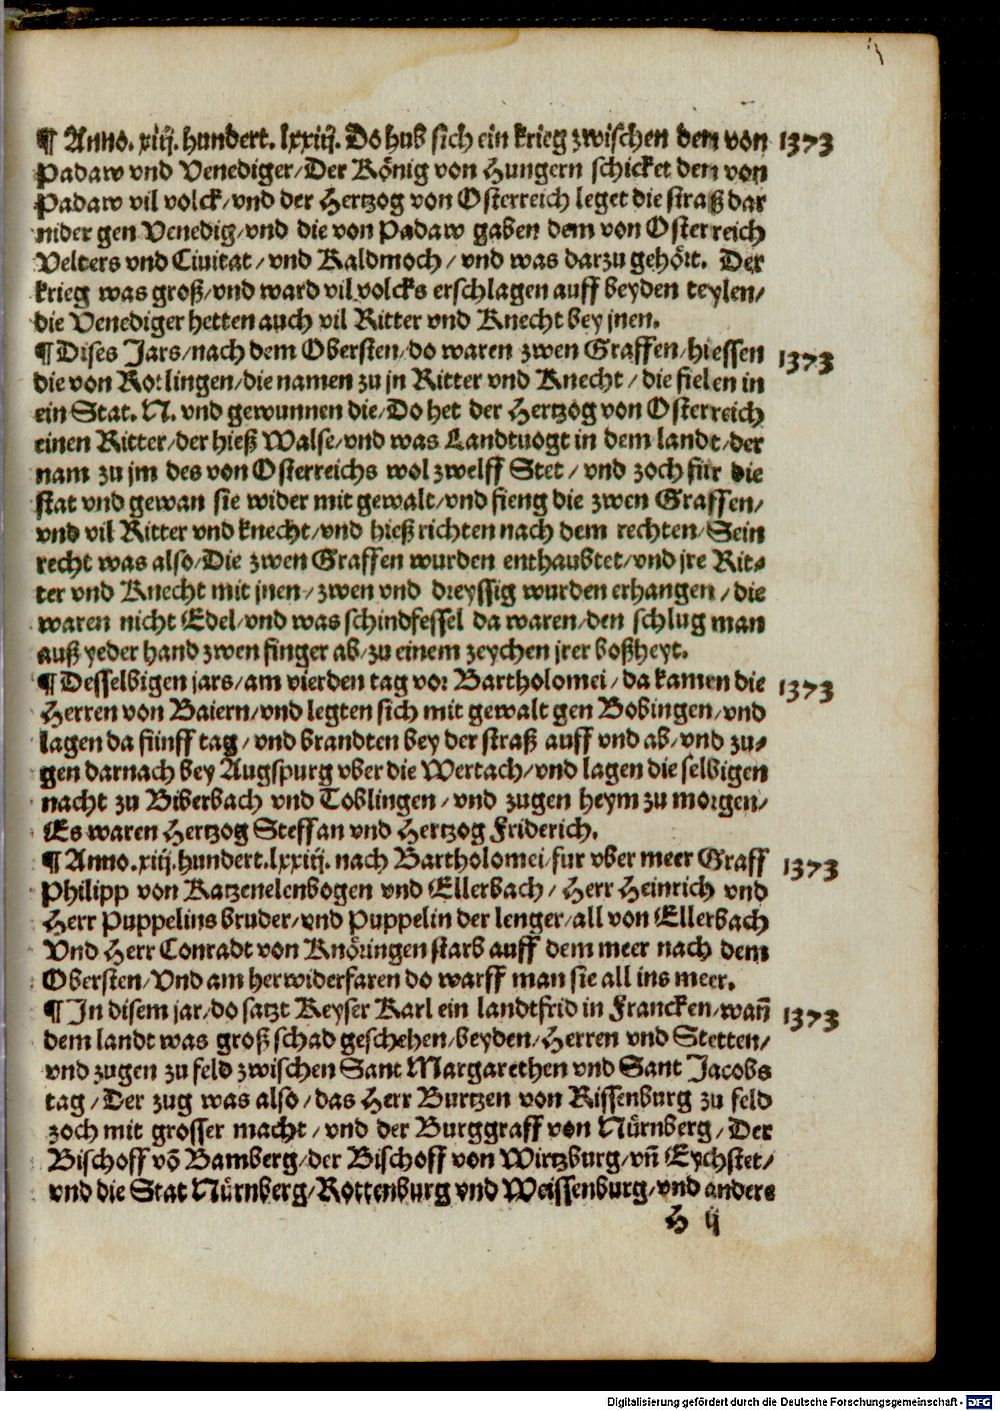 ¶ Anno. xiij. hundert. lxxiij. Do hub sich ein krieg zwischen dem von 1373
Padaw vnd Venediger/Der König von Hungern schicket den von
Padaw vil volck/vnd der Hertzog von Osterreich leget die straß dar
nider gen Venedig/vnd die von Padaw gaben dem von Osterreich
Velters vnd Ciuitat/vnd Kaldmoch/vnd was darzu gehört. Der
krieg was groß/vnd ward vil volcks erschlagen auff beyden teylen/
die Venediger hetten auch vil Ritter vnd Knecht bey jnen.
¶ Dises Jars/nach dem Obersten/do waren zwen Graffen/hiessen 1373
die von Rotlingen/die namen zu jn Ritter vnd Knecht/die fielen in
ein Stat. N. vnd gewunnen die/Do het der Hertzog von Osterreich
einen Ritter/der hieß Walse/vnd was Landtuogt in dem landt/der
nam zu jm des von Osterreichs wol zwelff Stet/vnd zoch für die
stat vnd gewan sie wider mit gewalt/vnd fieng die zwen Graffen/
vnd vil Ritter vnd knecht/vnd hieß richten nach dem rechten/Sein
recht was also/Die zwen Graffen wurden enthaubtet/vnd jre Rit⸗
ter vnd Knecht mit jnen/zwen vnd dreyssig wurden erhangen/die
waren nicht Edel/vnd was schindfessel da waren/den schlug man
auß yeder hand zwen finger ab/zu einem zeychen jrer boßheyt.
¶ Desselbigen jars/am vierden tag vor Bartholomei/da kamen die 1373
Herren von Baiern/vnd legten sich mit gewalt gen Bobingen/vnd
lagen da fünff tag/vnd brandten bey der straß auff vnd ab/vnd zu⸗
gen darnach bey Augspurg vber die Wertach/vnd lagen die selbigen
nacht zu Biberbach vnd Toblingen/vnd zugen heym zu morgen/
Es waren Hertzog Steffan vnd Hertzog Friderich.
¶ Anno. xiij. hundert. lxxiij. nach Bartholomei/fur vber meer Graff 1373
Philipp von Katzenelenbogen vnd Ellerbach/Herr Heinrich vnd
Herr Puppelins bruder/vnd Puppelin der lenger/all von Ellerbach
Vnd Herr Conradt von Knöringen starb auff dem meer nach dem
Obersten/Vnd am herwiderfaren do warff man sie all ins meer.
¶ In disem jar/do satzt Keyser Karl ein landtfrid in Francken/wañ 1373
dem landt was groß schad geschehen/beyden/Herren vnd Stetten/
vnd zugen zu feld zwischen Sant Margarethen vnd Sant Jacobs
tag/Der zug was also/das Herr Burtzen von Rissenburg zu feld
zoch mit grosser macht/vnd der Burggraff von Nürnberg/Der
Bischoff võ Bamberg/der Bischoff von Wirtzburg/vñ Eychstet/
vnd die Stat Nürnberg/Rottenburg vnd Weissenburg/vnd andere
H ij
Digitalisierung gefördert durch die Deutsche Forschungsgemeinschaft - DFG